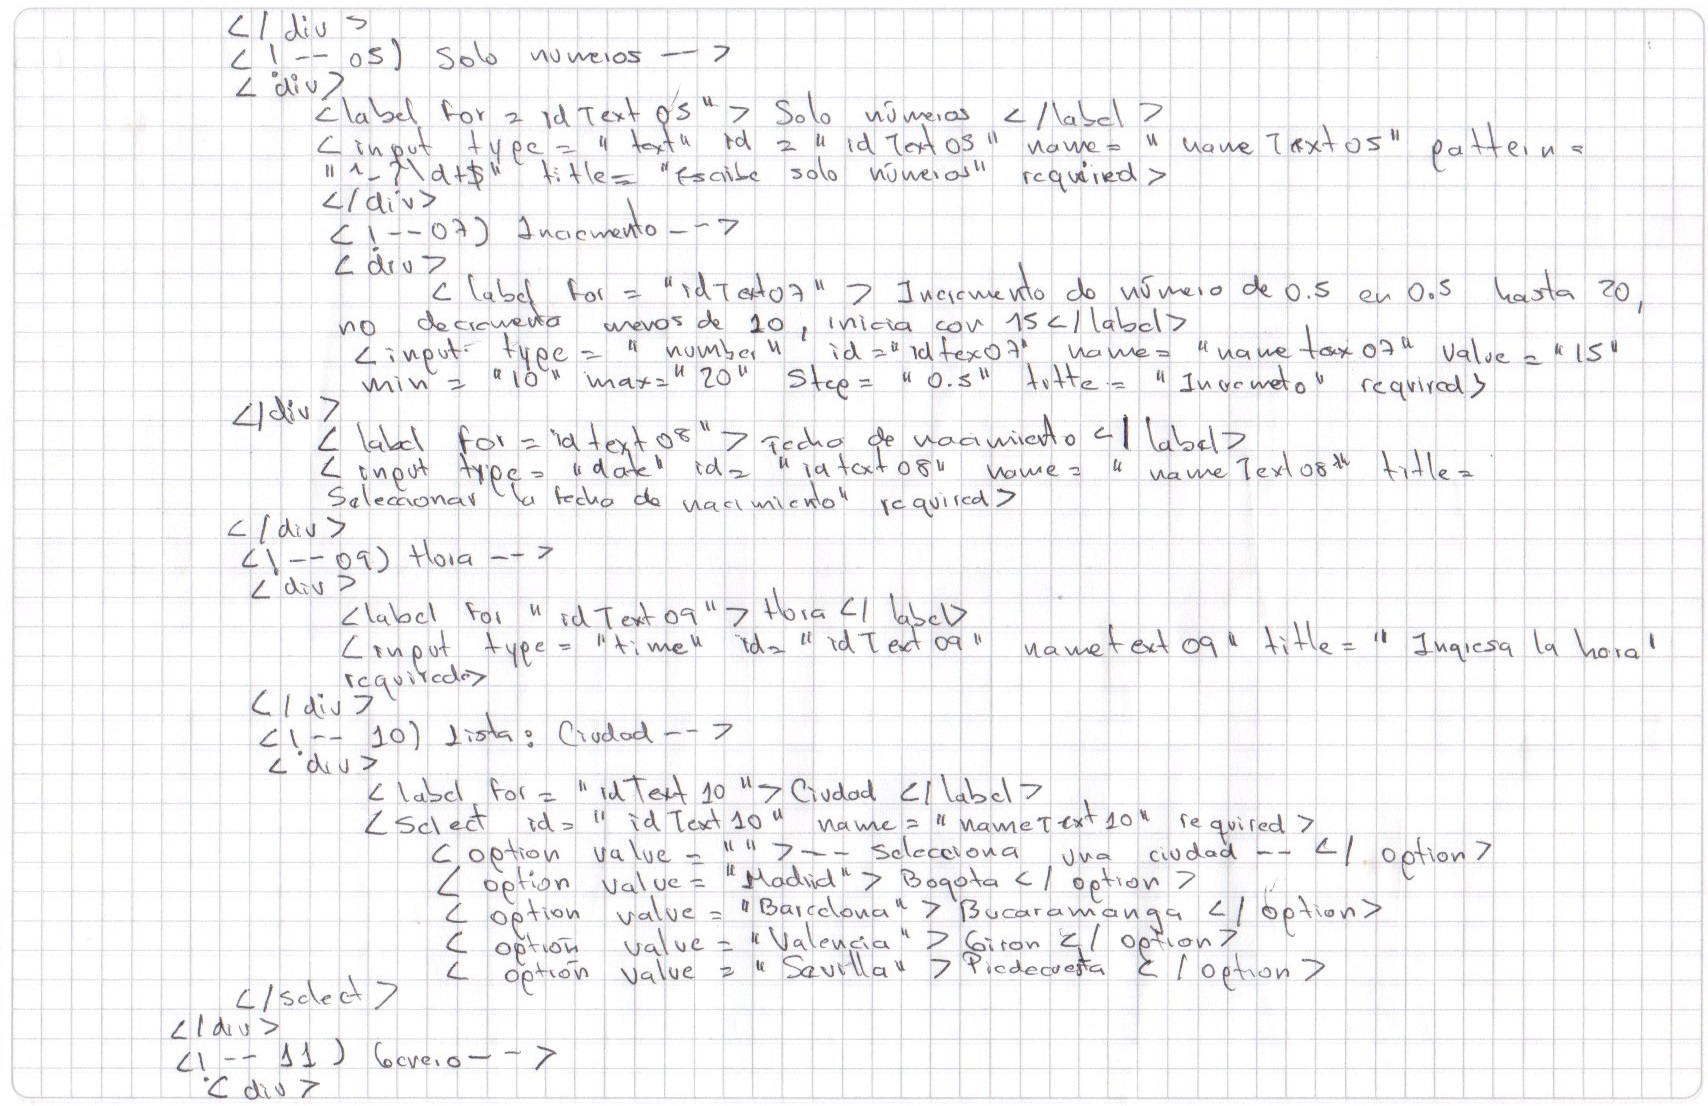 </div>
<!-- 05) Solo numeros -->
<div>
<label for = idText 05"> Solo números </label>
<input type = "text" id = "idText05" name= "nameText05" pattern =
"^-?\d+$" title= "Escribe solo números" required>
</div>
<!--07) Incremento -->
<div>
<label for = "idText07"> Incremento do número de 0.5 en 0.5 hasta 20,
no decremento menos de 10, inicia con 15</label>
<input type = "number" id="idtex07" name= "name tex07" value = "15"
min = "10" max="20" Step= "0.5" titte = "Incremeto" required>
</div>
<label for = idtext08"> Fecha de nacimiento </label>
<input type= "date" id= "idtext08" name= "nameText08" title=
Seleccionar la fecha de nacimiento" required>
</div>
<!--09) Hora -->
<div>
<label for "idText09"> Hora </label>
<input type= "time" id= "idText09" nametext09" title= "Ingresa la hora"
required>
</div>
<!-- 10) Lista: Ciudad -->
<div>
<label for= "idText10"> Ciudad </label>
<Select id= "idText10" name= "nameText10" required>
<option value = "">-- Selecciona una ciudad -- </option>
<option value= "Madrid"> Bogota </option>
<option value= "Barcelona"> Bucaramanga </option>
<option value= "Valencia"> Giron </option>
<option value = "Sevilla"> Piedecuesta </option>
</select>
</div>
<!-- 11) Genero -->
<div>